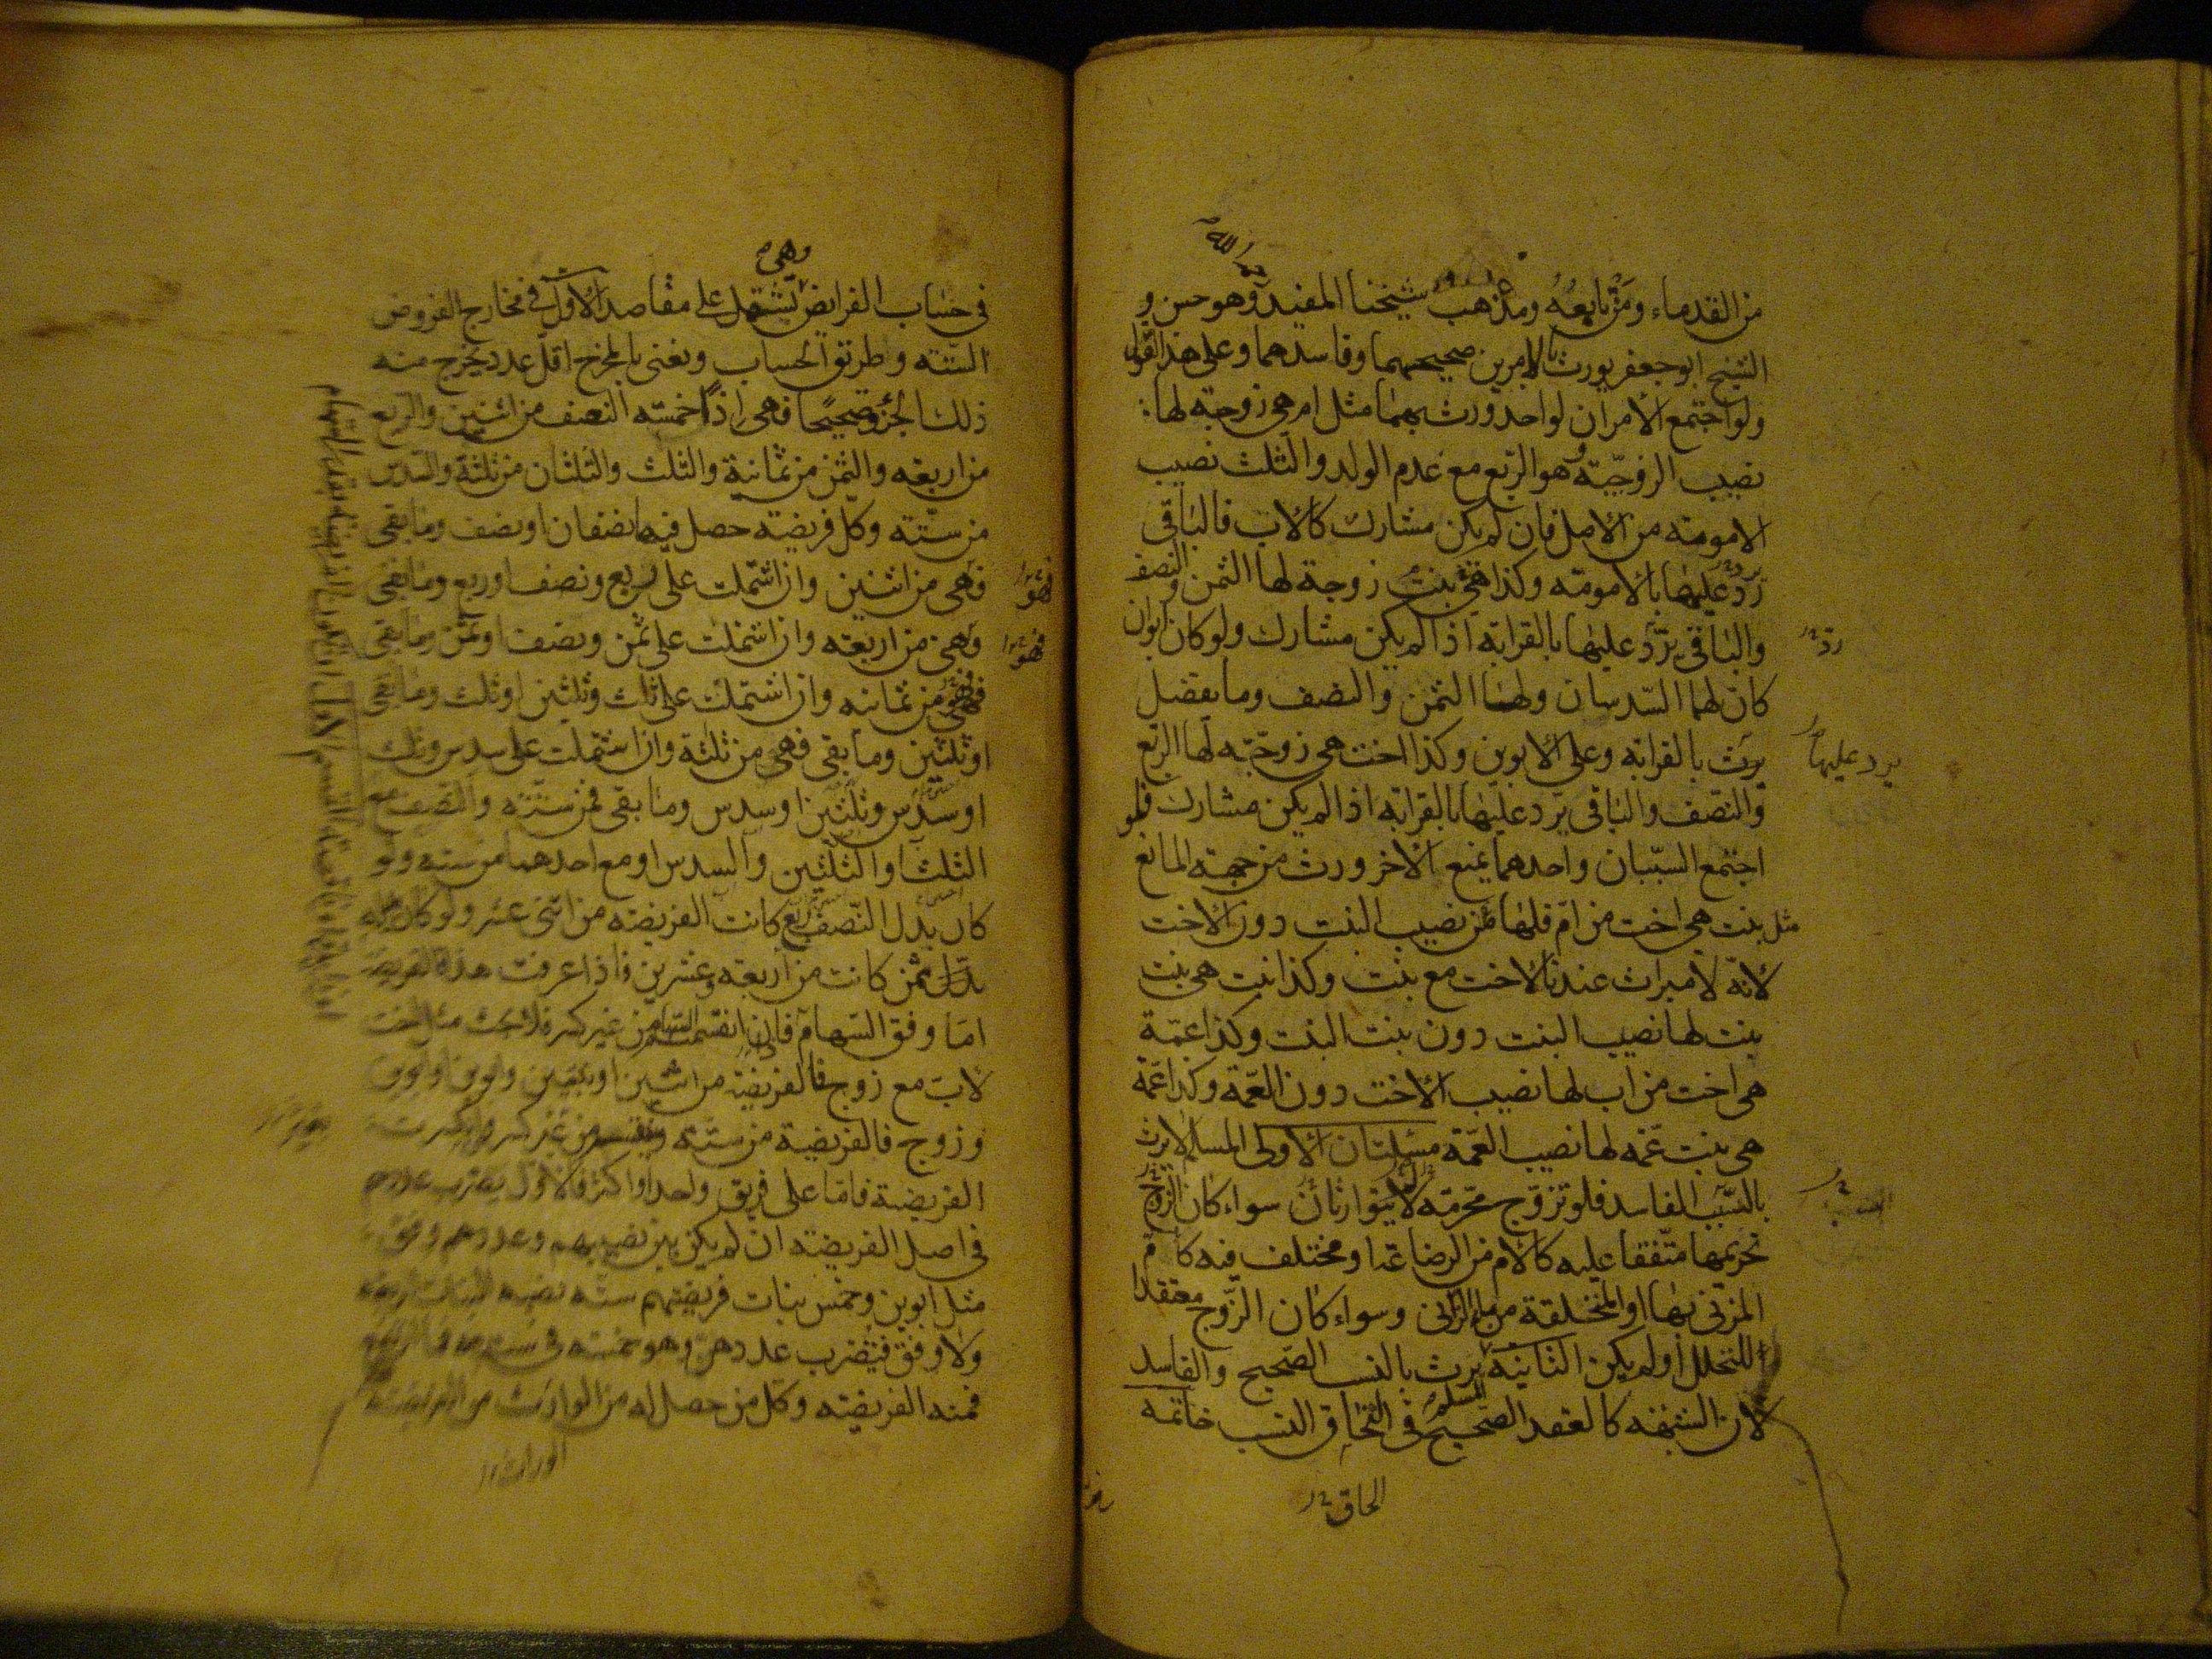 من القدماء ومن تابعه ومذهب شيخنا المفيد ره وهو حسن و
الشيخ ابو جعفر يورث بالامرين صحيحهما وفاسدهما وعلى هذا القول
ولو اجتمع الامران لواحد ورث بهما مثل ام هي زوجة لها
نصيب الزوجية وهو الربع مع عدم الولد والثلث نصيب
الامومة من الاصل فان لم يكن مشارك كالاب فالباقي
يرد عليها بالامومة وكذا بنت هي زوجة لها الثمن والنصف
والباقي يرد عليها بالقرابة اذا لم يكن مشارك ولو كان ابوان
كان لهما السدسان ولها الثمن والنصف وما يفضل
يرث بالقرابة وعلى الابوين وكذا اخت هي زوجة لها الربع
والنصف والباقي يرد عليها بالقرابة اذا لم يكن مشارك فلو
اجتمع السببان واحدهما يمنع الاخر ورث من جهة المانع
مثل بنت هي اخت من ام فلها من نصيب البنت دون الاخت
لانه لا ميراث عندنا لاخت مع بنت وكذا بنت هي بنت
بنت لها نصيب البنت دون بنت البنت وكذا عمة
هي اخت من اب لها نصيب الاخت دون العمة وكذا عمة
هي بنت عمة لها نصيب العمة مسئلتان الاولى المسلم لا يرث
بالسبب الفاسد فلو تزوج محرمة لا يتوارثان سواء كان الزوج
تحريمها متفقا عليه كالام من الرضاع او مختلف فيه كام
المزني بها او المتخلقة من ماء الزاني وسواء كان الزوج معتقدا
للتحلل او لم يكن الثانية يرث بالنسب الصحيح والفاسد
لان الشبهة كالعقد الصحيح في التحاق النسب خاتمة
رد
يرد عليها
الحاق
في حساب الفرايض وهي تشتمل على مقاصد الاول في مخارج الفروض
الستة وطريق الحساب ونعني بالمخرج اقل عدد يخرج منه
ذلك الجزؤ صحيحا فهي اذًا خمسة النصف من اثنين والربع
من اربعة والثمن من ثمانية والثلث والثلثان من ثلثة والسدس
من ستة وكل فريضة حصل فيها نصفان او نصف وما بقي
فهي من اثنين وان اشتملت على ربع ونصف او ربع وما بقي
فهي من اربعة وان اشتملت على ثمن ونصف او ثمن وما بقي
فهي من ثمانية وان اشتملت على ثلث وثلثين او ثلث وما بقي
او ثلثين وما بقي فهي من ثلثة وان اشتملت على سدس وثلث
او سدس وثلثين او سدس وما بقي فمن ستة والنصف مع
الثلث او الثلثين والسدس او مع احدهما من ستة ولو
كان بدل النصف ربع كانت الفريضة من اثنى عشر ولو كان
بدله ثمن كانت من اربعة وعشرين فاذا عرفت هذا فالفريضة
اما وفق السهام فان انقسمت من غير كسر فلا بحث مثل اخت
لاب مع زوج فالفريضة من اثنين او بنتين وابوين او ابوين
وزوج فالفريضة من ستة وينقسم من غير كسر وان انكسرت
الفريضة فاما على فريق واحد او اكثر فالاول يضرب عددهم
في اصل الفريضة ان لم يكن بين نصيبهم وعددهم وفق
مثل ابوين وخمس بنات فريضتهم ستة نصيب البنات اربعة
ولا وفق فيضرب عددهن وهو خمسة في ستة
فمنه الفريضة وكل من حصل له من الوارث من الفريضة
فهو
فهو
الوراث